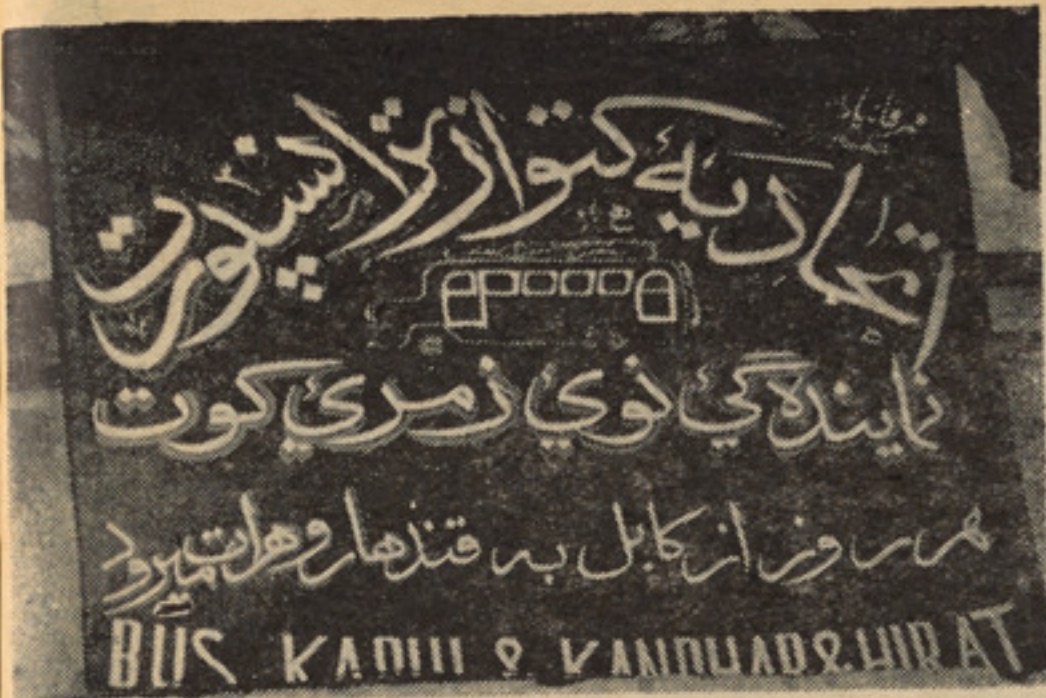 اتحادیهٔ کتواز ترانسپورت
نمایندہ گئ نوي زمرئ کوت
هر روز از کابل به قندهار و هرات میرود
BUS KABUL & KANDHAR & HIRAT